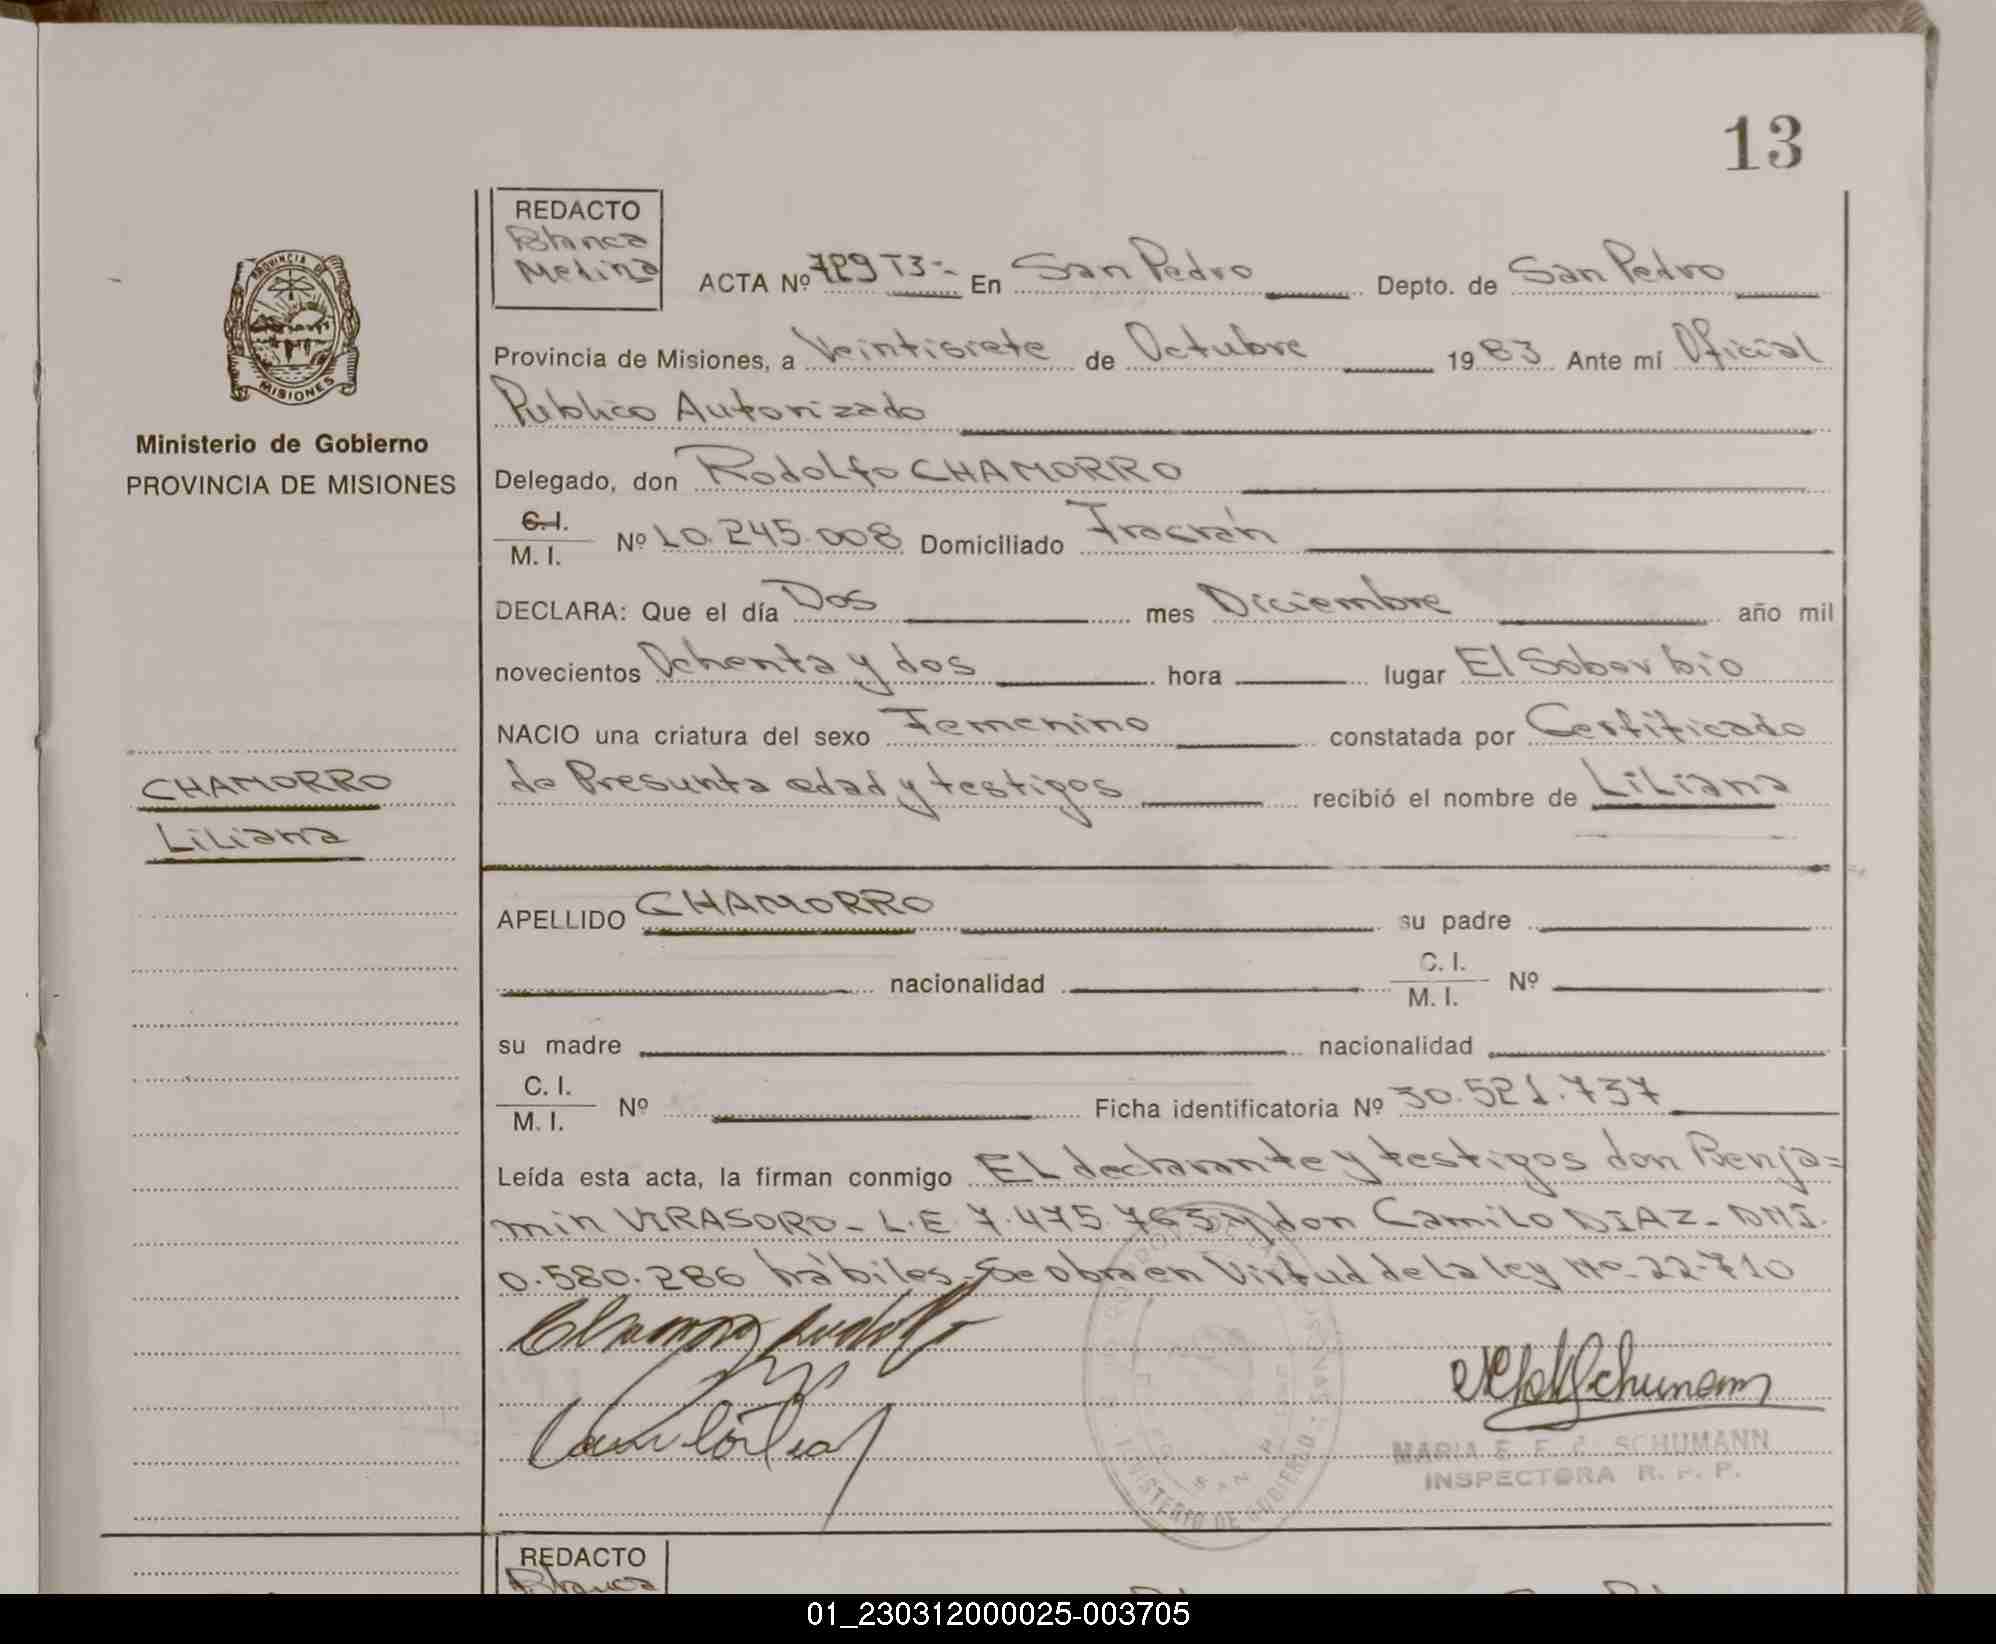 13
REDACTO
Blanca
Medina
ACTA Nº 729 T3=. En San Pedro Depto. de San Pedro
Provincia de Misiones, a Veintisiete de Octubre 1983 Ante mí Oficial
Publico Autorizado
Delegado, don Rodolfo CHAMORRO
C. I.
M. I. Nº 10.245.008 Domiciliado Fracrán
DECLARA: Que el día Dos mes Diciembre año mil
novecientos Ochenta y dos hora lugar El Soberbio
NACIO una criatura del sexo Femenino constatada por Certificado
de Presunta edad y testigos recibió el nombre de Liliana
PROVINCIA DE
MISIONES
Ministerio de Gobierno
PROVINCIA DE MISIONES
CHAMORRO
Liliana
APELLIDO CHAMORRO su padre
nacionalidad C. I.
M. I. Nº
su madre nacionalidad
C. I.
M. I. Nº Ficha identificatoria Nº 30.521.737
Leída esta acta, la firman conmigo El declarante y testigos don Benja=
min VIRASORO- L.E. 7.475.763 y don Camilo DIAZ- DNI.
0.580.286 hábiles.- Se obra en Virtud de la ley Nº 22.710
Chamorro Rodolfo
Camilo Diaz
Schumann
MARIA E. F. SCHUMANN
INSPECTORA R. P. P.
MINISTERIO DE GOBIERNO
REDACTO
Blanca
01_230312000025-003705